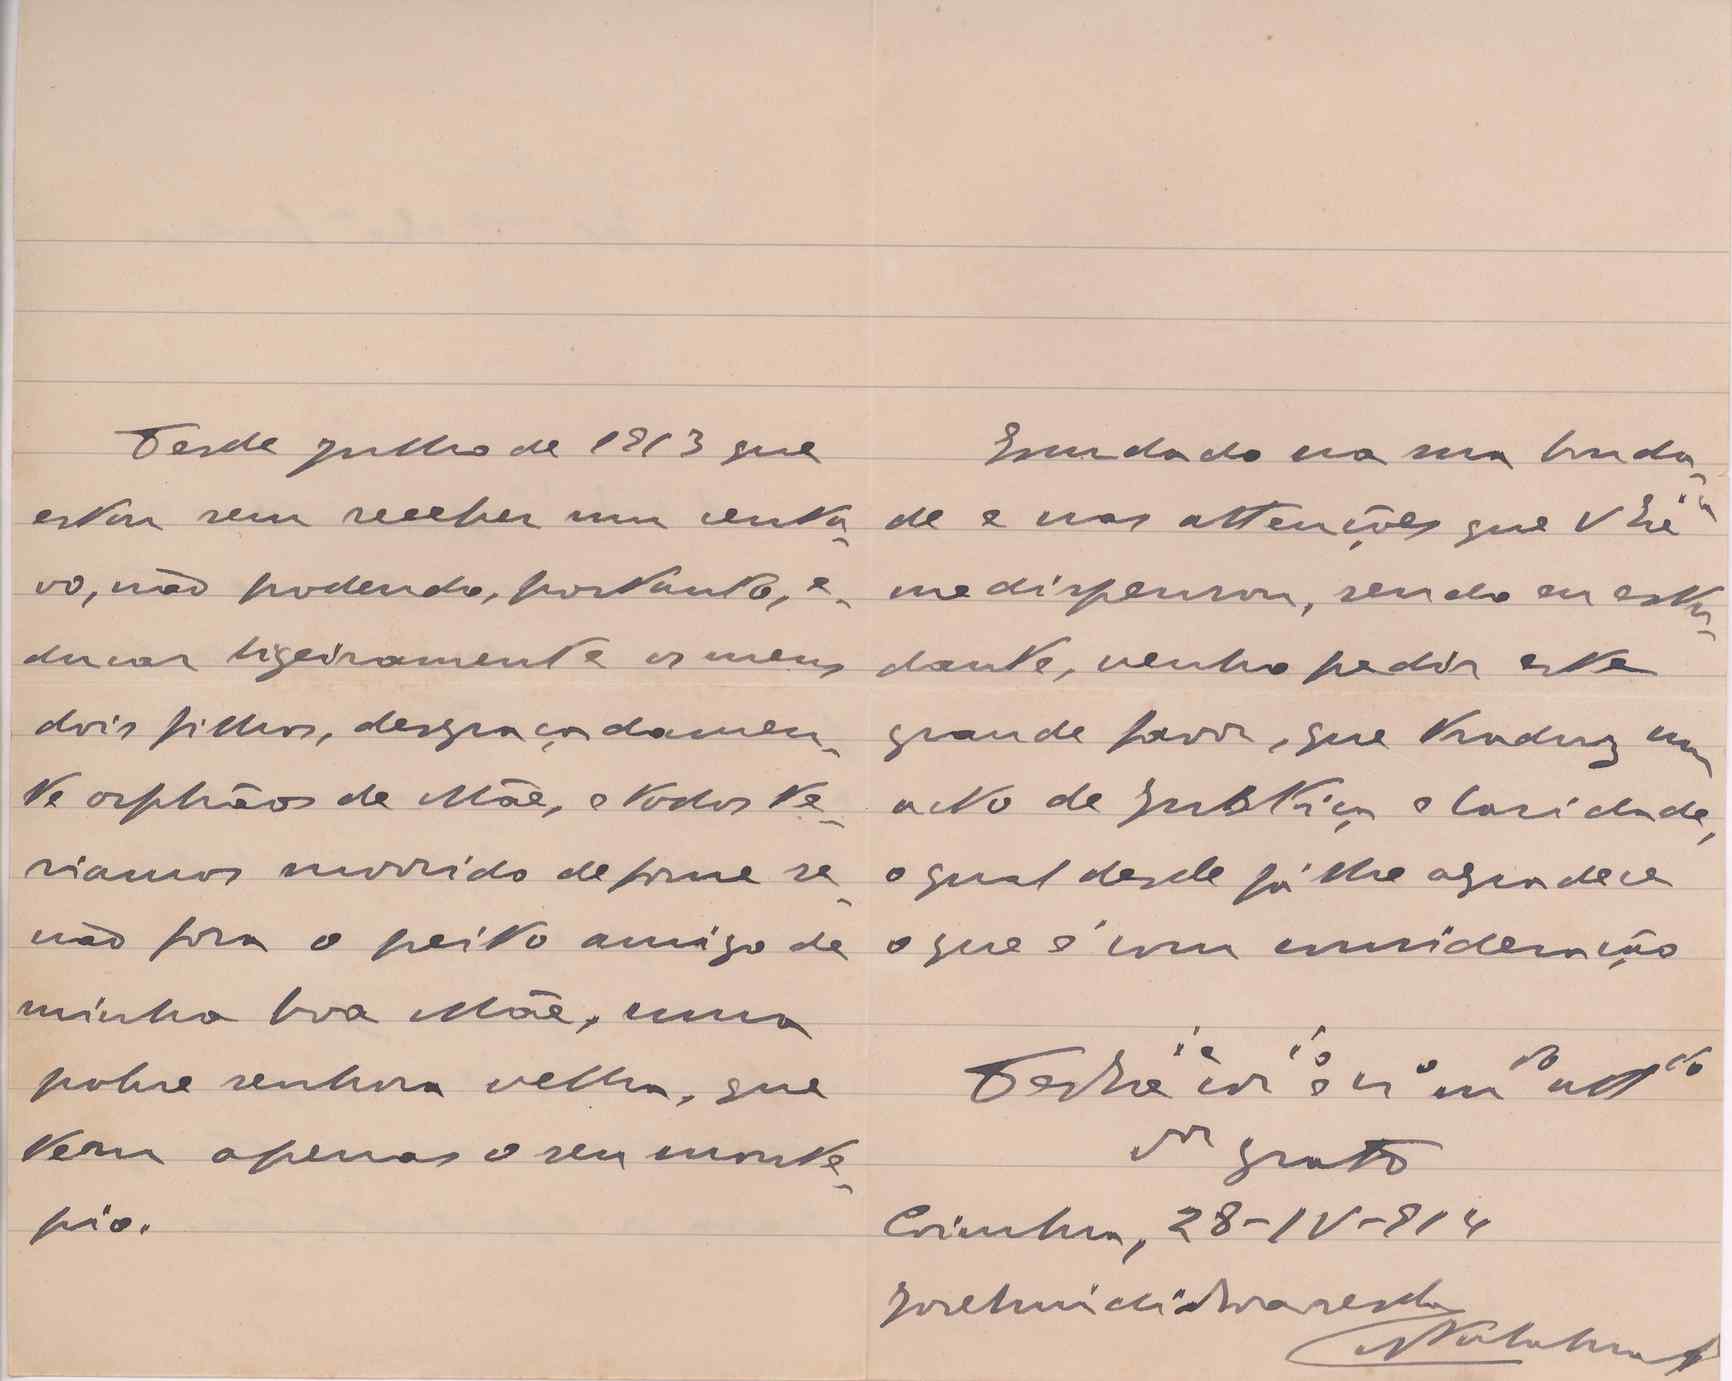 Desde Julho de 1913 que
estou sem receber um centa-
vo, não podendo, portanto, e-
ducar ligeiramente os meus
dois filhos, desgraçadamen-
te orphãos de Mãe, e todos te-
riamos morrido de fome se-
não fora o peito amigo de
minha boa Mãe, uma
pobre senhora velha, que
tem apenas o seu monte-
pio.
Escudado na sua bonda-
de e nas attenções que V Exciª
me dispensou, sendo eu estu-
dante, venho pedir este
grande favor, que traduz um
acto de Justiça e Caridade,
o qual desde já lhe agradece
o que é com consideração
De V Exciª
grato
Coimbra, 28-IV-914
José